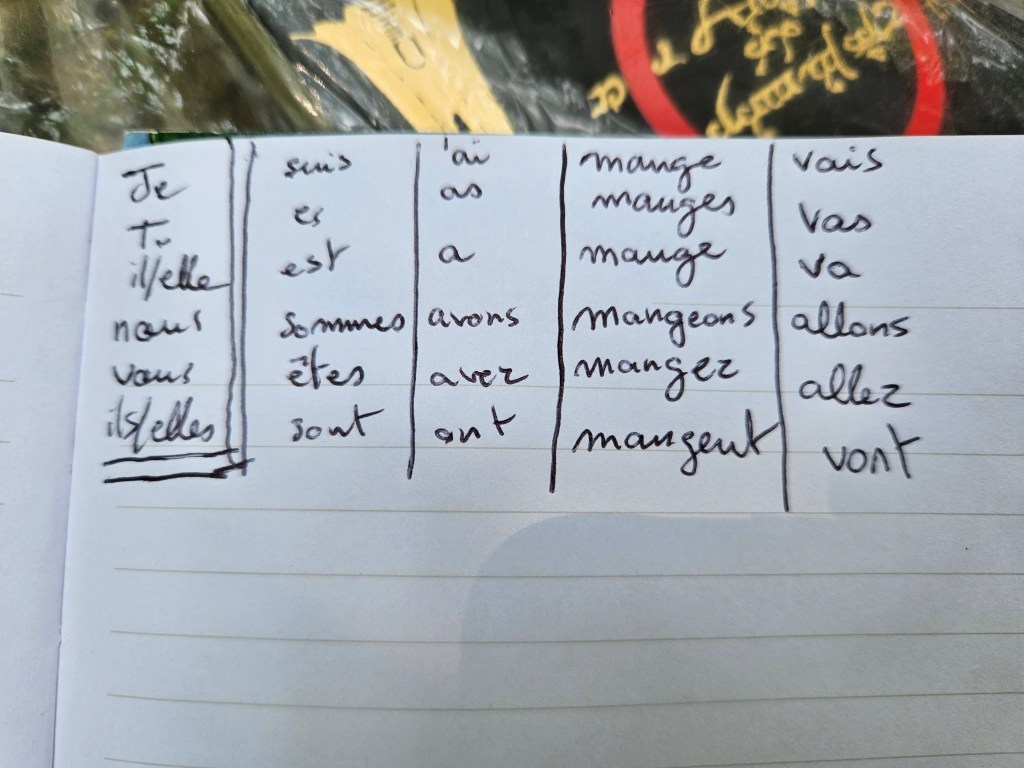 Je suis 'ai mange vais
Tu es as manges vas
il/elle est a mange va
nous sommes avons mangeons allons
vous êtes avez mangez allez
ils/elles sont ont mangent vont